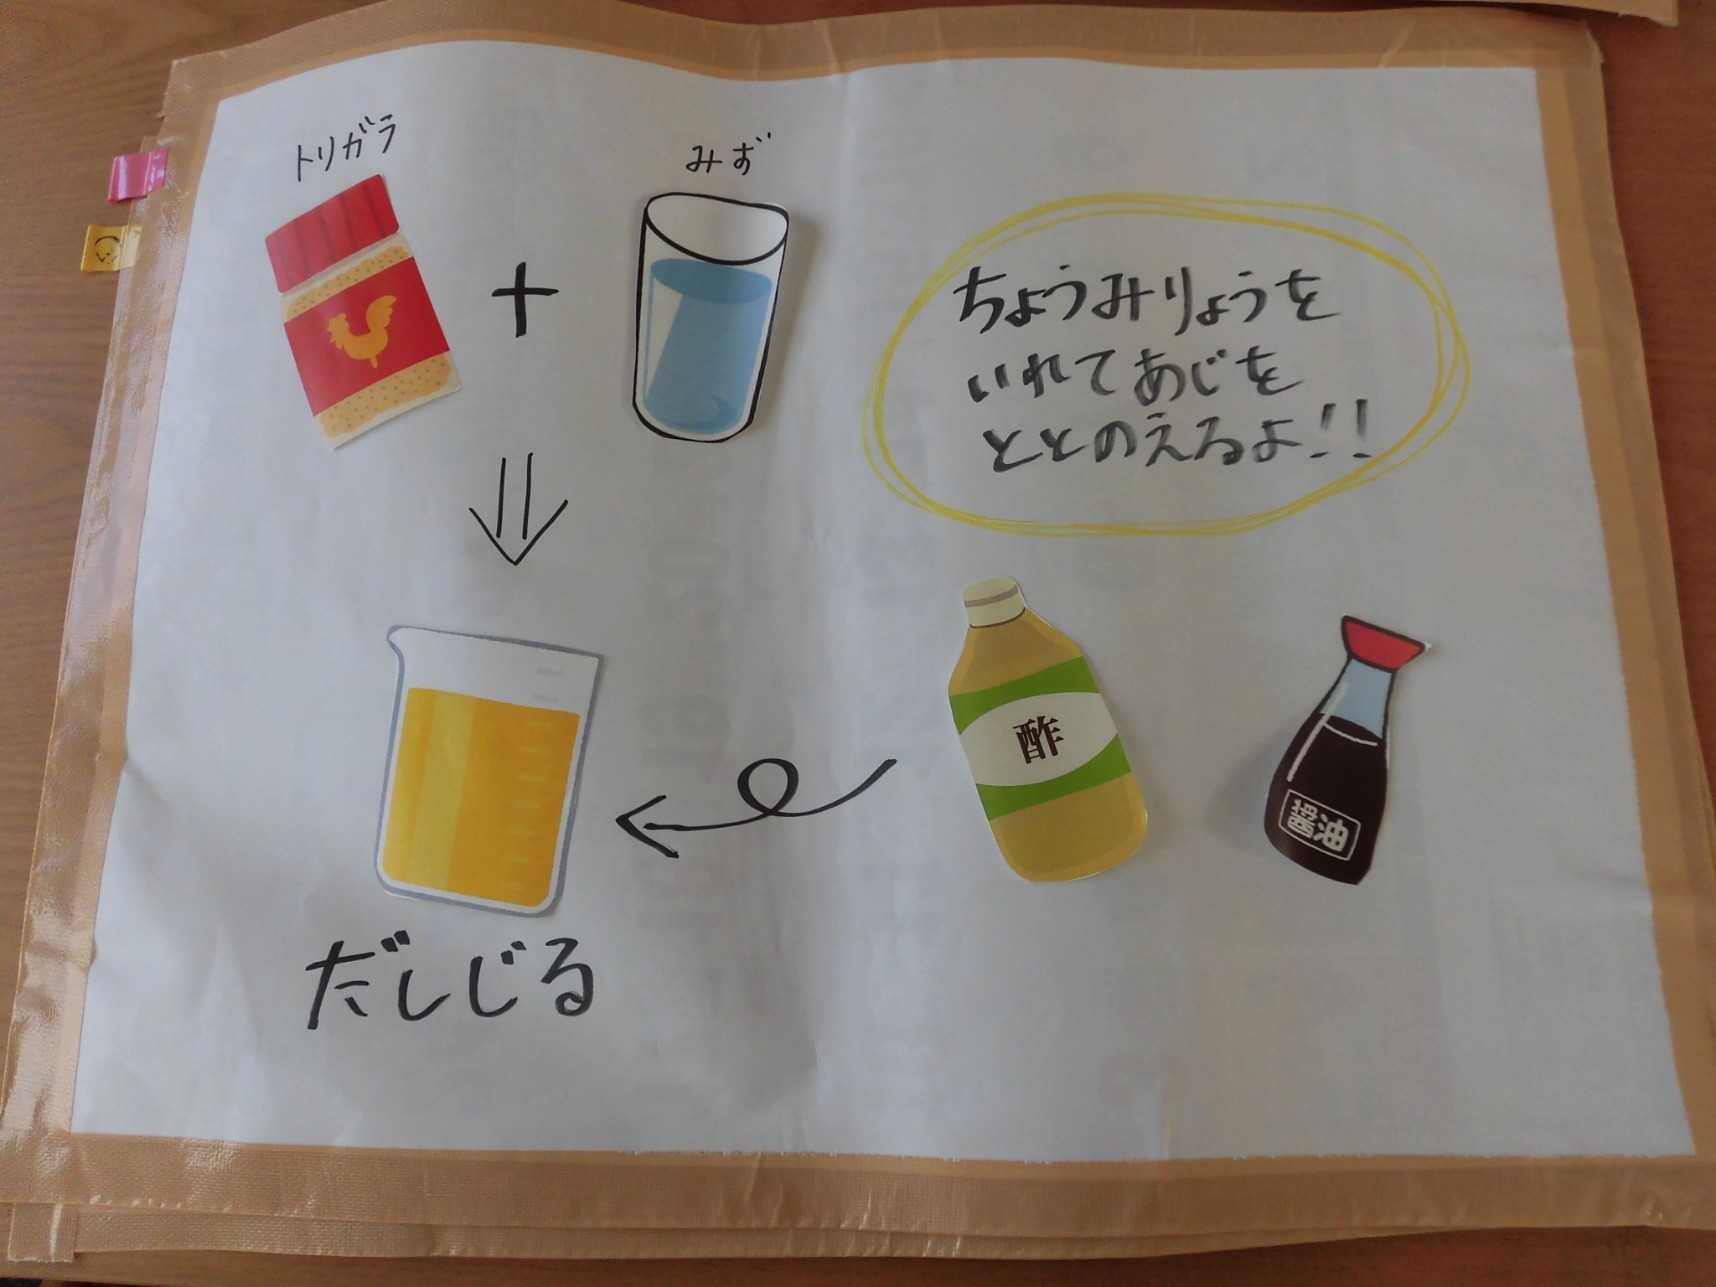 トリガラ
みず
ちょうみりょうを
いれてあじを
ととのえるよ!!
酢
醤油
だしじる